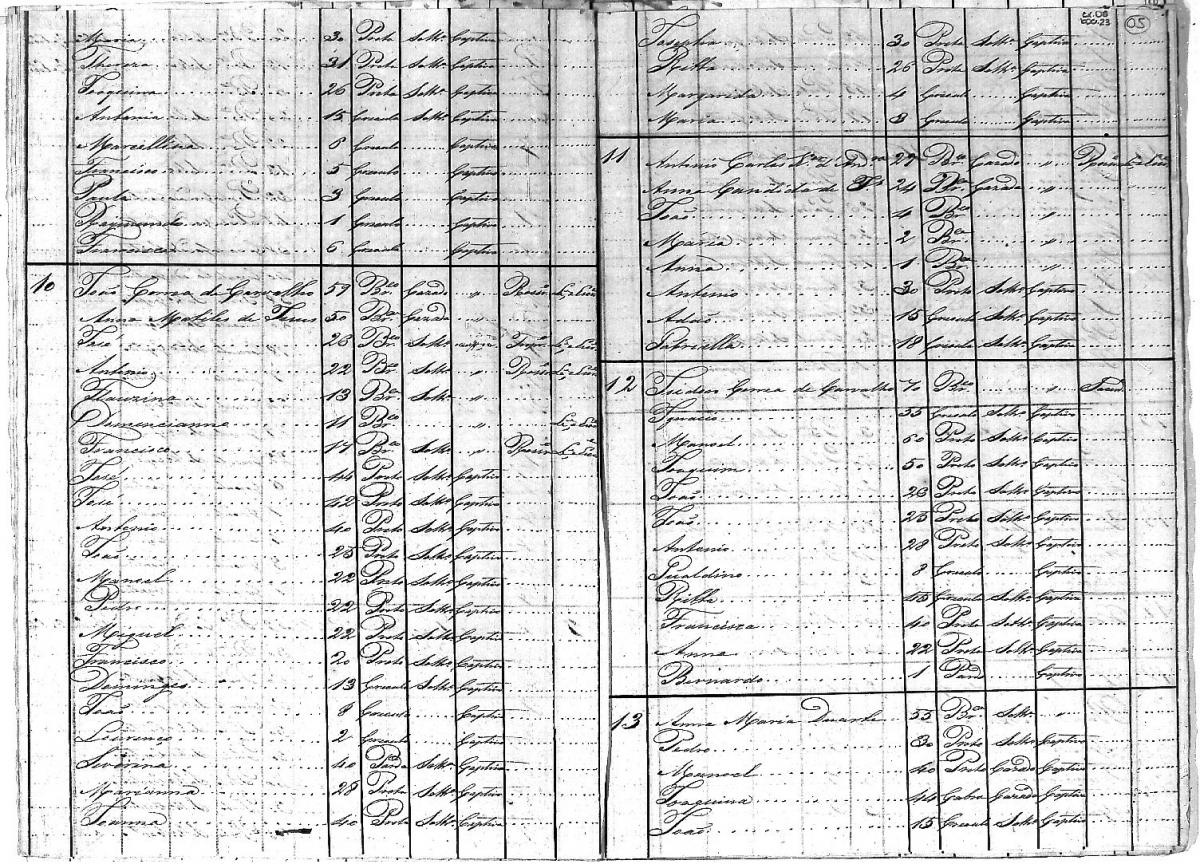 Maria 30 Preto Soltª Captiva
Thereza 31 Preto Soltª Captiva
Joaquina 26 Preta Soltª Captiva
Antonia 15 Crioula Soltª Captiva
Marcellina 6 Crioula Captiva
Francisco 5 Crioulo Captivo
Paula 3 Crioula Captiva
Raymundo 1 Crioulo Captivo
Francisca 6 Crioula Captiva
10 João Correa de Carvalho 59 Brco Cazado "
Anna de Jesus 50 Brca Cazada
José 23 Brco Soltº
Antonio 22 Brco Soltº "
Flauzina 13 Brca Soltª "
11 Brco "
Francisco 17 Brco Soltº "
José 44 Preto Soltº Captivo
José 42 Preto Soltº Captivo
Antonio 40 Preto Soltº Captivo
João 25 Preto Soltº Captivo
Manoel 22 Preto Soltº Captivo
Pedro 22 Preto Soltº Captivo
Miguel 22 Preto Soltº Captivo
Francisco 20 Preto Soltº Captivo
Domingos 13 Crioulo Soltº Captivo
João 8 Crioulo Captivo
Lourenço 2 Crioulo Captivo
Siverina 40 Parda Soltª Captiva
Marianna 28 Preta Soltª Captiva
Joanna 40 Preta Soltª Captiva
cx.08
doc.23
05
Josepha 30 Preta Soltª Captiva
Ritta 25 Preta Soltª Captiva
Margarida 4 Crioula Captiva
Maria 3 Crioula Captiva
11 Antonio Carlos 27 Brco Cazado "
Anna Candida de 24 Brca Cazada "
João 4 Brco "
Maria 2 Brca "
Anna 1 Brca "
Antonio 30 Preto Soltº Captivo
Adão 15 Crioulo Soltº Captivo
18 Crioula Soltª Captiva
12 de Carvalho 70 Brco "
Ignacio 55 Crioulo Soltº Captivo
Manoel 60 Preto Soltº Captivo
Joaquim 50 Preto Soltº Captivo
João 23 Preto Soltº Captivo
João 25 Preto Soltº Captivo
Antonio 28 Preto Soltº Captivo
8 Crioulo Captivo
Ritta 45 Crioula Soltª Captiva
Francisca 40 Preta Soltª Captiva
Anna 22 Preta Soltª Captiva
Bernardo 1 Pard Captivo
13 Anna Maria Duarte 55 Brca Soltª "
Pedro 30 Preto Soltº Captivo
Manoel 40 Preto Cazado Captivo
Joaquina 44 Cabra Cazada Captiva
João 15 Crioulo Soltº Captivo